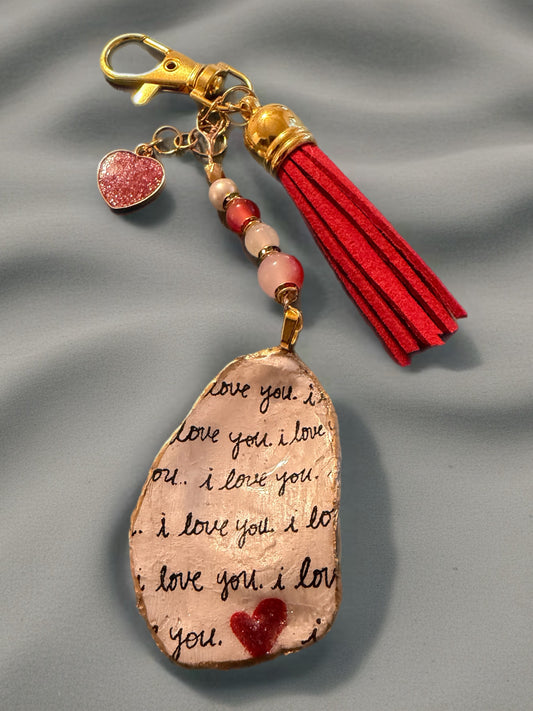 love you. i
love you. i love
ou.. i love you.
.. i love you. i lo
i love you. i lov
you. i